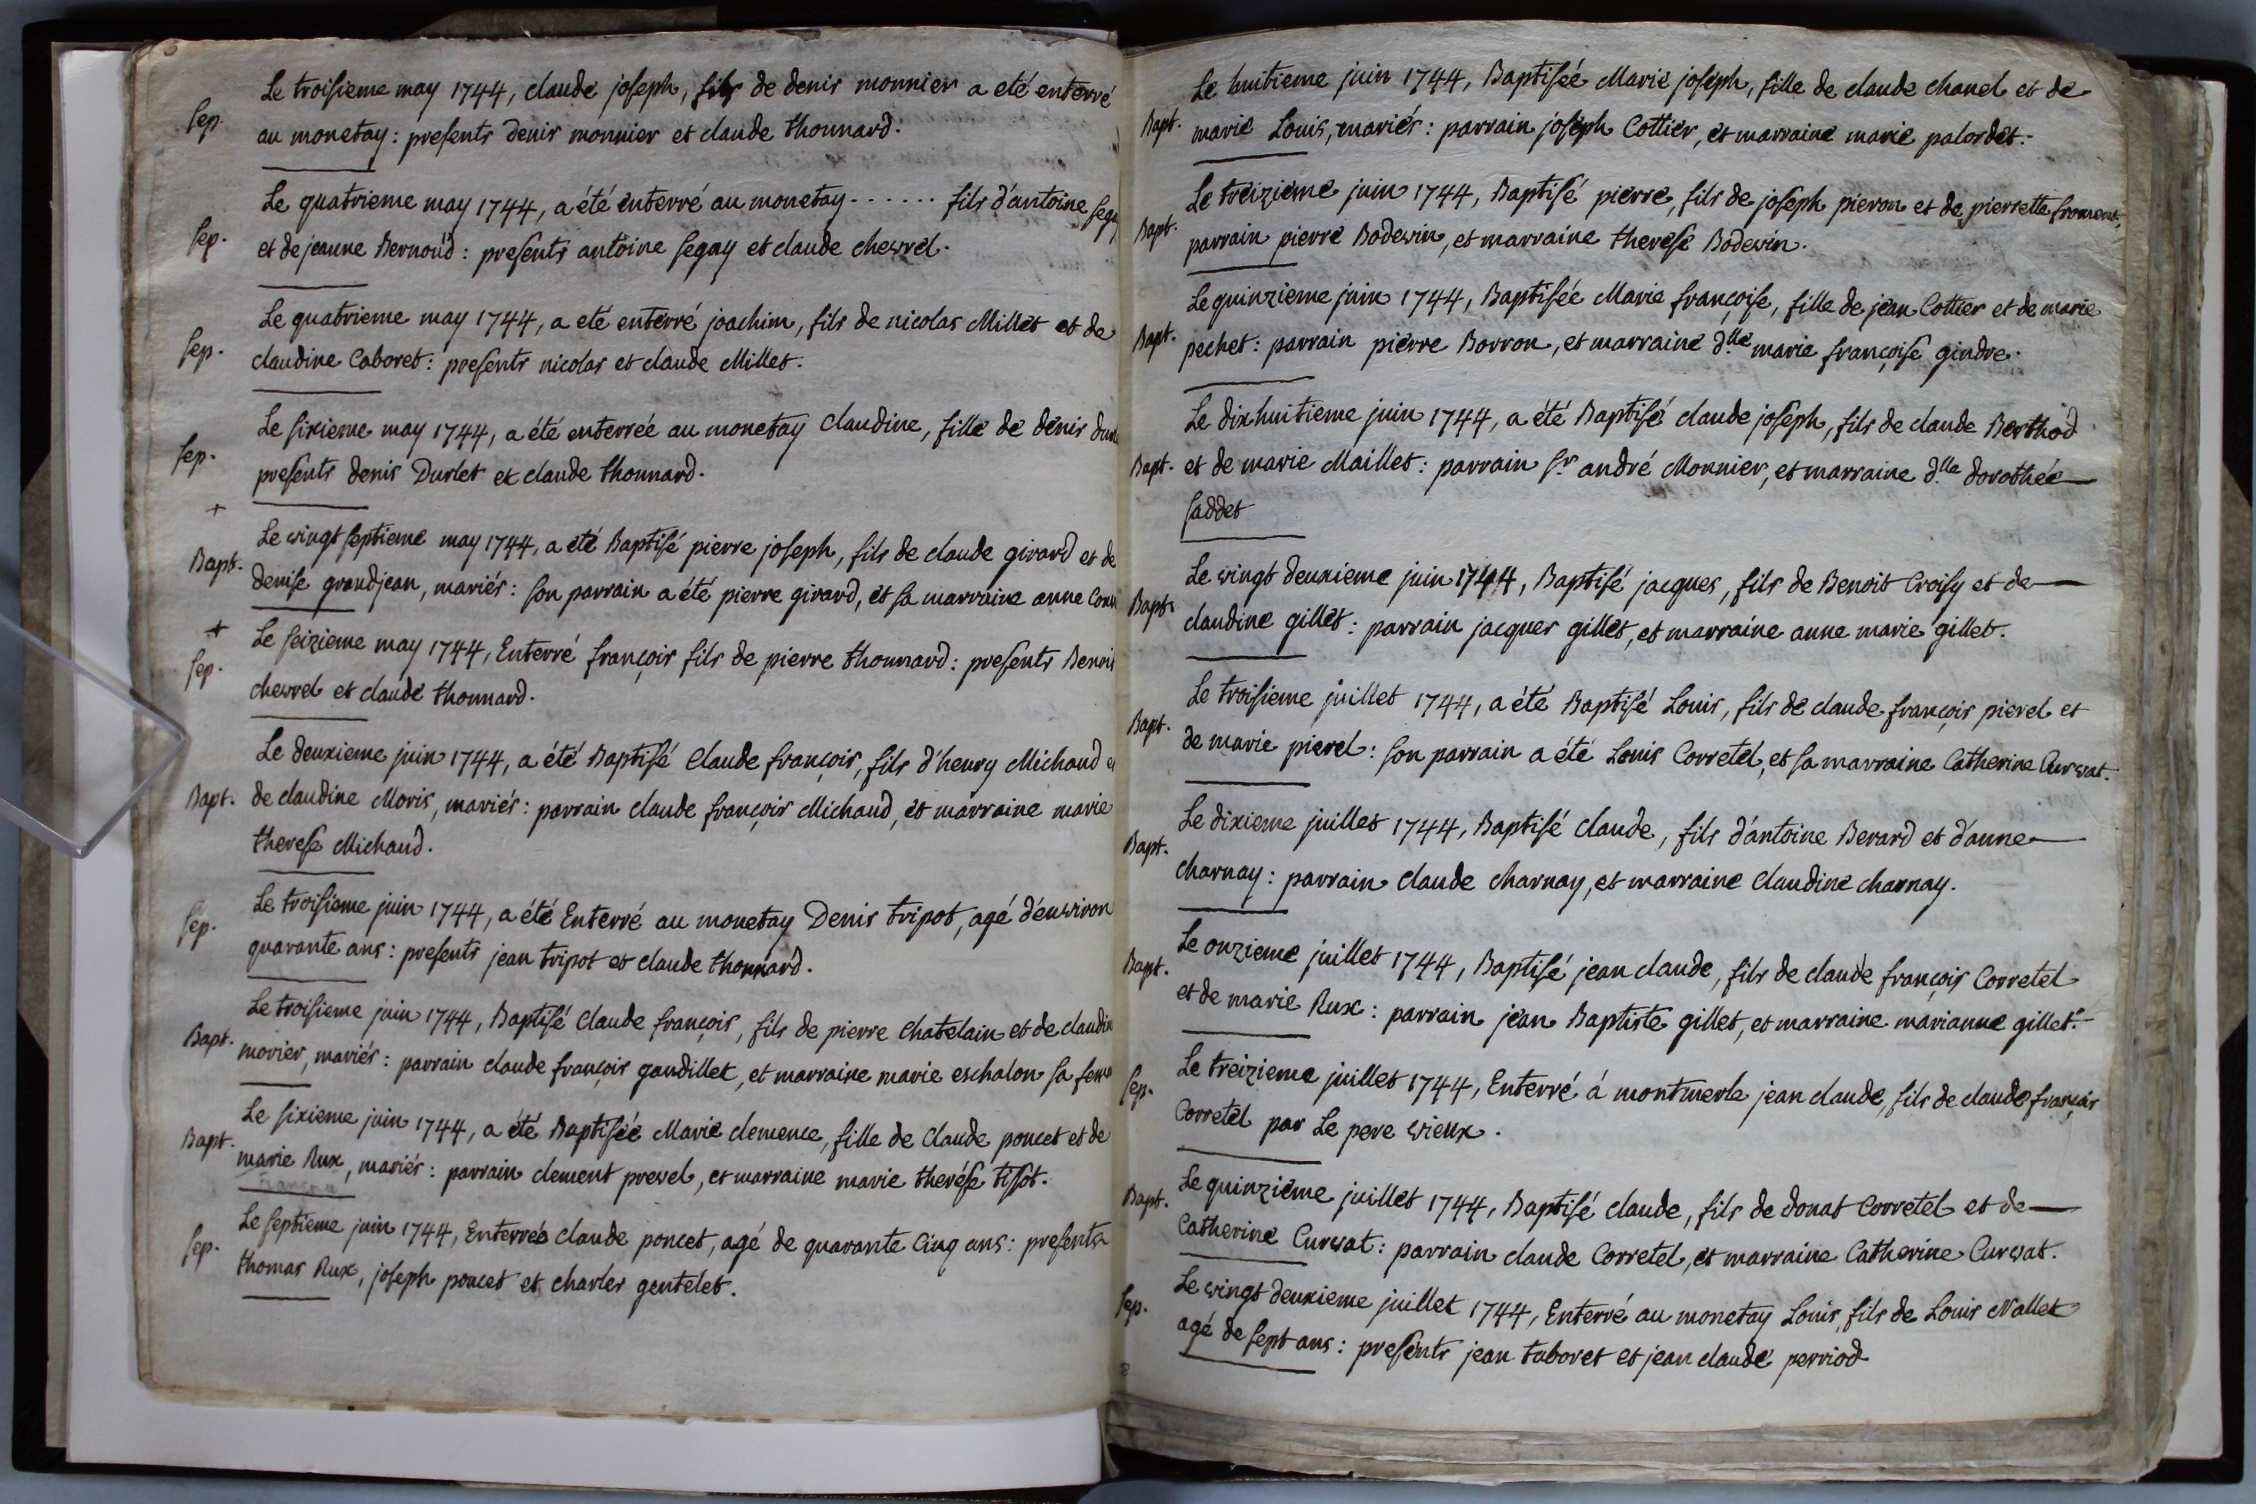 Le troisieme may 1744, claude joseph, fils de denis monnier a eté enterré
Sep. au monetay: presents denis monnier et claude thonnard.
Le quatrieme may 1744, a été enterré au monetay ...... fils d'antoine
Sep. et de jeanne Bernoud: presents antoine segay et claude chevrel.
Le quatrieme may 1744, a eté enterré joachim, fils de nicolas Millet et de
Sep. claudine Caboret: presents nicolas et claude Millet.
Le sixieme may 1744, a été enterrée au monetay Claudine, fille de denis
Sep. presents denis Durlet et claude thonnard.
+
Le vingt septieme may 1744, a été Baptisé pierre joseph, fils de claude girard et de
Bapt. denise grandjean, mariés: son parrain a été pierre girard, et sa marraine anne
+
Le seizieme may 1744, Enterré françois fils de pierre thonnard: presents Benoit
Sep. chevrel et claude thonnard.
Le deuxieme juin 1744, a été Baptisé Claude françois, fils d'henry Michaud et
Bapt. de claudine Moris, mariés: parrain claude françois Michaud, et marraine marie
therese Michaud.
Le troisieme juin 1744, a été Enterré au monetay Denis tripot, agé d'environ
Sep. quarante ans: presents jean tripot et claude thonnard.
Le troisieme juin 1744, Baptisé Claude françois, fils de pierre Chatelain et de claudine
Bapt. morier, mariés: parrain claude françois gaudillet, et marraine marie eschalon sa
Le sixieme juin 1744, a été Baptisée Marie clemence, fille de Claude poncet et de
Bapt. marie Rux, mariés: parrain clement prevel, et marraine marie therése tissot.
Le septieme juin 1744, Enterré claude poncet, agé de quarante Cinq ans: presents
Sep. thomas Rux, joseph poncet et charles gentelet.
Le huitieme juin 1744, Baptisée Marie joseph, fille de claude chanel et de
Bapt. marie Louis, mariés: parrain joseph Cottier, et marraine marie palordet.
Le treizieme juin 1744, Baptisé pierre, fils de joseph pieron et de pierrette froment,
Bapt. parrain pierre Bodevin, et marraine therese Bodevin.
Le quinzieme juin 1744, Baptisée Marie françoise, fille de jean Cottier et de marie
Bapt. pechet: parrain pierre Borron, et marraine d.lle marie françoise gindre.
Le dixhuitieme juin 1744, a été Baptisé claude joseph, fils de claude Berthod
Bapt. et de marie Maillet: parrain Sr andré Monnier, et marraine d.lle dorothée
saddet
Le vingt deuxieme juin 1744, Baptisé jacques, fils de Benoit Croisy et de
Bapt. claudine gillet: parrain jacques gillet, et marraine anne marie gillet.
Le troisieme juillet 1744, a été Baptisé Louis, fils de claude françois pierel et
Bapt. de marie pierel: son parrain a été Louis Corretel, et sa marraine Catherine Curvat.
Le dixieme juillet 1744, Baptisé claude, fils d'antoine Berard et d'anne
Bapt. charnay: parrain claude charnay, et marraine claudine charnay.
Le onzieme juillet 1744, Baptisé jean claude, fils de claude françois Corretel
Bapt. et de marie Rux: parrain jean Baptiste gillet, et marraine marianne gillet.
Le treizieme juillet 1744, Enterré á montmerle jean claude, fils de claude françois
Sep. Corretel par Le pere vieux.
Le quinziéme juillet 1744, Baptisé claude, fils de donat Corretel et de
Bapt. Catherine Curvat: parrain claude Corretel, et marraine Catherine Curvat.
Le vingt deuxieme juillet 1744, Enterré au monetay Louis, fils de Louis Nallet
Sep. agé de sept ans: presents jean taboret et jean claude perriod